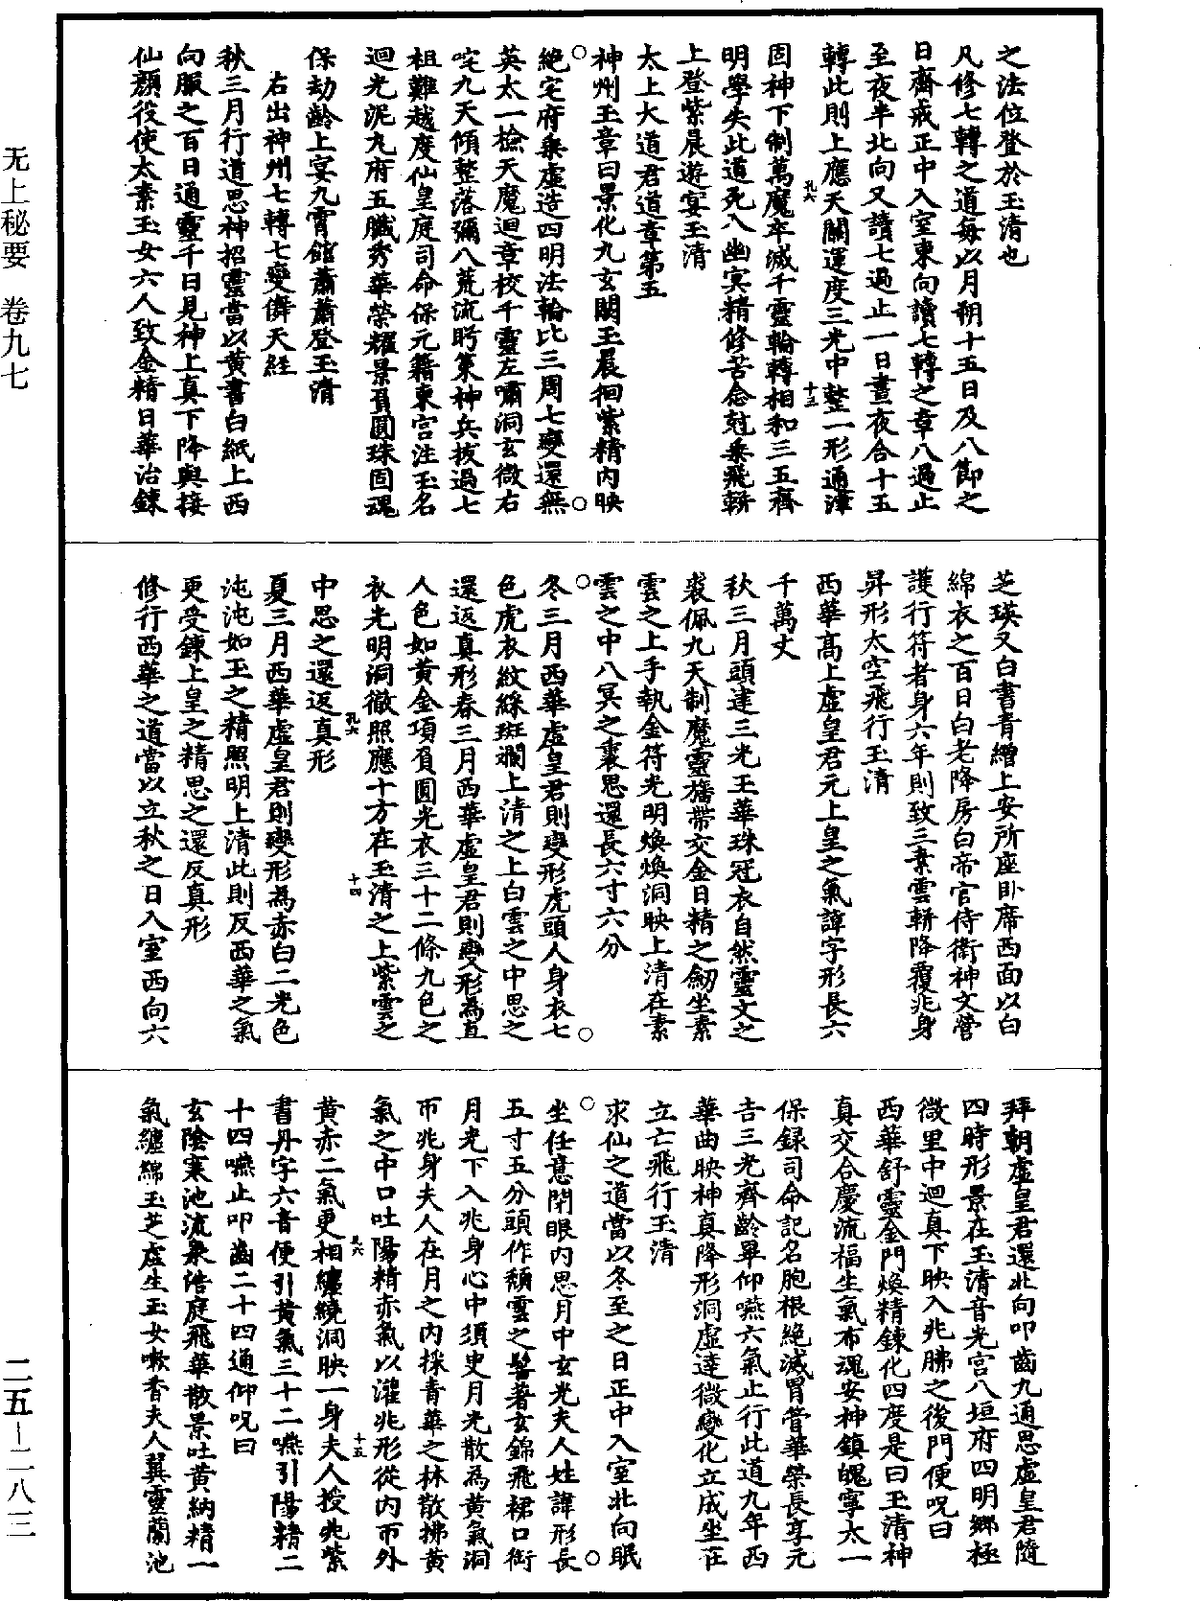 无上秘要 卷九七
二五—二八三
之法位登於玉清也
凡修七轉之道每以月朔十五日及八節之
日齋戒正中入室東向讀七轉之章八過止
至夜半北向又讀七過止一日晝夜合十五
轉此則上應天關運度三光中整一形通津
孔六
十三
固神下制萬魔卒滅千靈輪轉相和三五齊
明學失此道死入幽冥精修苦念尅乘飛軿
上登紫晨遊宴玉清
太上大道君道章第五
神州玉章曰景化九玄關玉晨徊紫精內映
絕宅府乘虛造四明法輪比三周七變還無
英太一檢天魔迴章校千靈左嘯洞玄微右
咤九天傾整落彌八荒流眄策神兵拔過七
祖難越度仙皇庭司命保元籍東宮注玉名
迴光泥丸府五臟秀華榮耀景負圓珠固魂
保劫齡上宴九霄館蕭蕭登玉清
右出神州七轉七變儛天經
秋三月行道思神招靈當以黃書白紙上西
向服之百日通靈千日見神上真下降與接
仙顏役使太素玉女六人致金精日華治鍊
芝瑛又白書青繒上安所座卧席西面以白
綿衣之百日白老降房白帝官侍衛神文營
護行符者身六年則致三素雲軿降覆兆身
昇形太空飛行玉清
西華高上虛皇君元上皇之氣諱字形長六
千萬丈
秋三月頭建三光玉華珠冠衣自然靈文之
裘佩九天制魔靈旛帶交金日精之劒坐素
雲之上手執金符光明煥煥洞映上清在素
雲之中八冥之裏思還長六寸六分
冬三月西華虛皇君則變形虎頭人身衣七
色虎衣紋綵斑斕上清之上白雲之中思之
還返真形春三月西華虛皇君則變形為真
人色如黃金項負圓光衣三十二條九色之
衣光明洞徹照應十方在玉清之上紫雲之
孔六
十四
中思之還返真形
夏三月西華虛皇君則變形為赤白二光色
沌沌如玉之精照明上清此則反西華之氣
更受鍊上皇之精思之還反真形
修行西華之道當以立秋之日入室西向六
拜朝虛皇君還北向叩齒九通思虛皇君隨
四時形景在玉清音光宮八垣府四明鄉極
微里中迴真下映入兆胇之後門便呪曰
西華舒靈金門煥精鍊化四度是曰玉清神
真交合慶流福生氣布魂安神鎮魄寧太一
保録司命記名胞根絕滅胃管華榮長享元
吉三光齊齡畢仰嚥六氣止行此道九年西
華曲映神真降形洞虛達微變化立成坐在
立亡飛行玉清
求仙之道當以冬至之日正中入室北向眠
坐任意閉眼內思月中玄光夫人姓諱形長
五寸五分頭作頹雲之髻著玄錦飛裙口銜
月光下入兆身心中須臾月光散為黃氣洞
帀兆身夫人在月之內採青華之林散拂黃
氣之中口吐陽精赤氣以灌兆形從內帀外
孔六
十五
黃赤二氣更相纏繞洞映一身夫人授兆紫
書丹字六音便引黃氣三十二嚥引陽精二
十四嚥止叩齒二十四通仰呪曰
玄陰寒池流泉浩庭飛華散景吐黃納精一
氣纏綿玉芝虛生玉女嗽香夫人翼靈蘭池